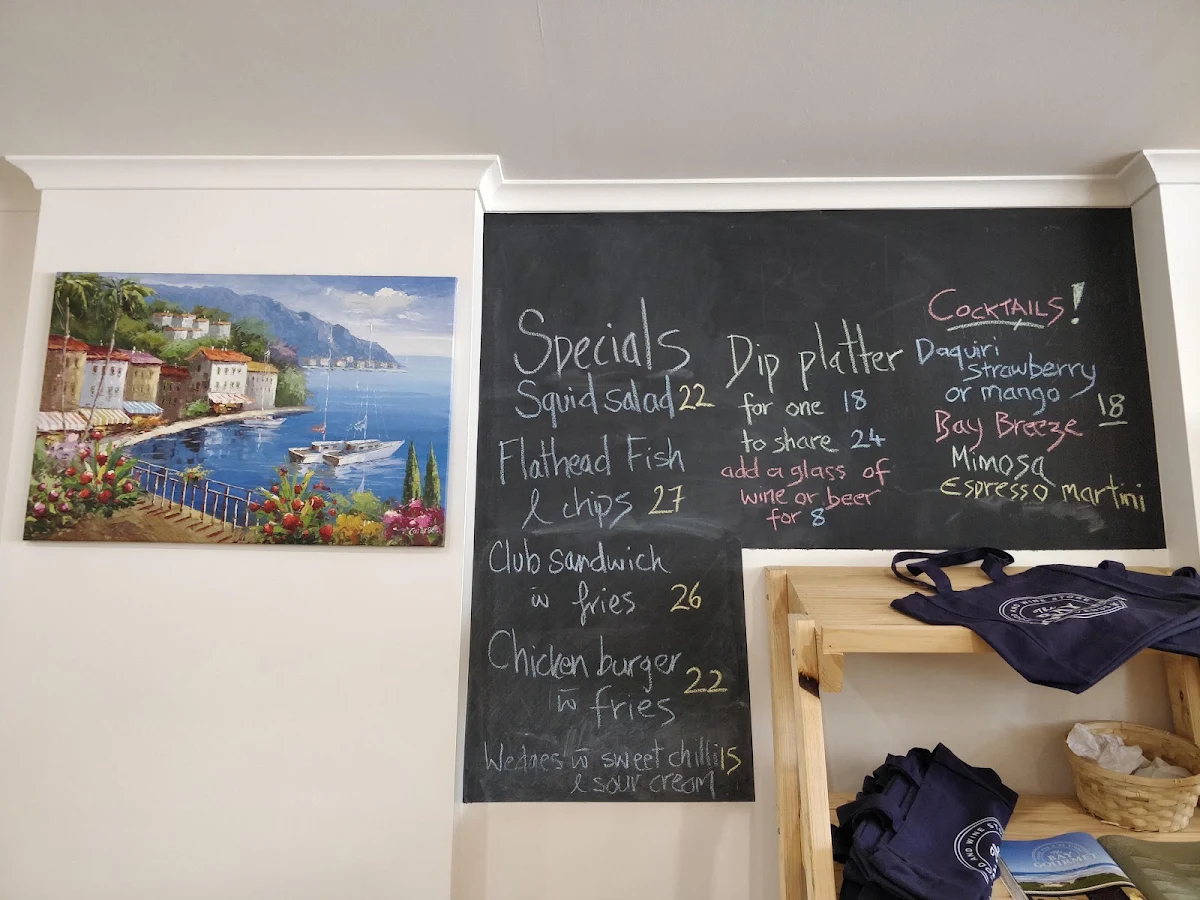 Specials
Squid salad 22
Flathead Fish
& chips 27
Club sandwich
w fries 26
Chicken burger
w fries 22
Wedges w sweet chilli 15
& sour cream
Dip platter
for one 18
to share 24
add a glass of
wine or beer
for 8
COCKTAILS!
Daquiri
strawberry
or mango
18
Bay Breeze
Mimosa
Espresso martini
AND WINE STORE
The
BAY
AND WINE
The
BAY
GOURMET